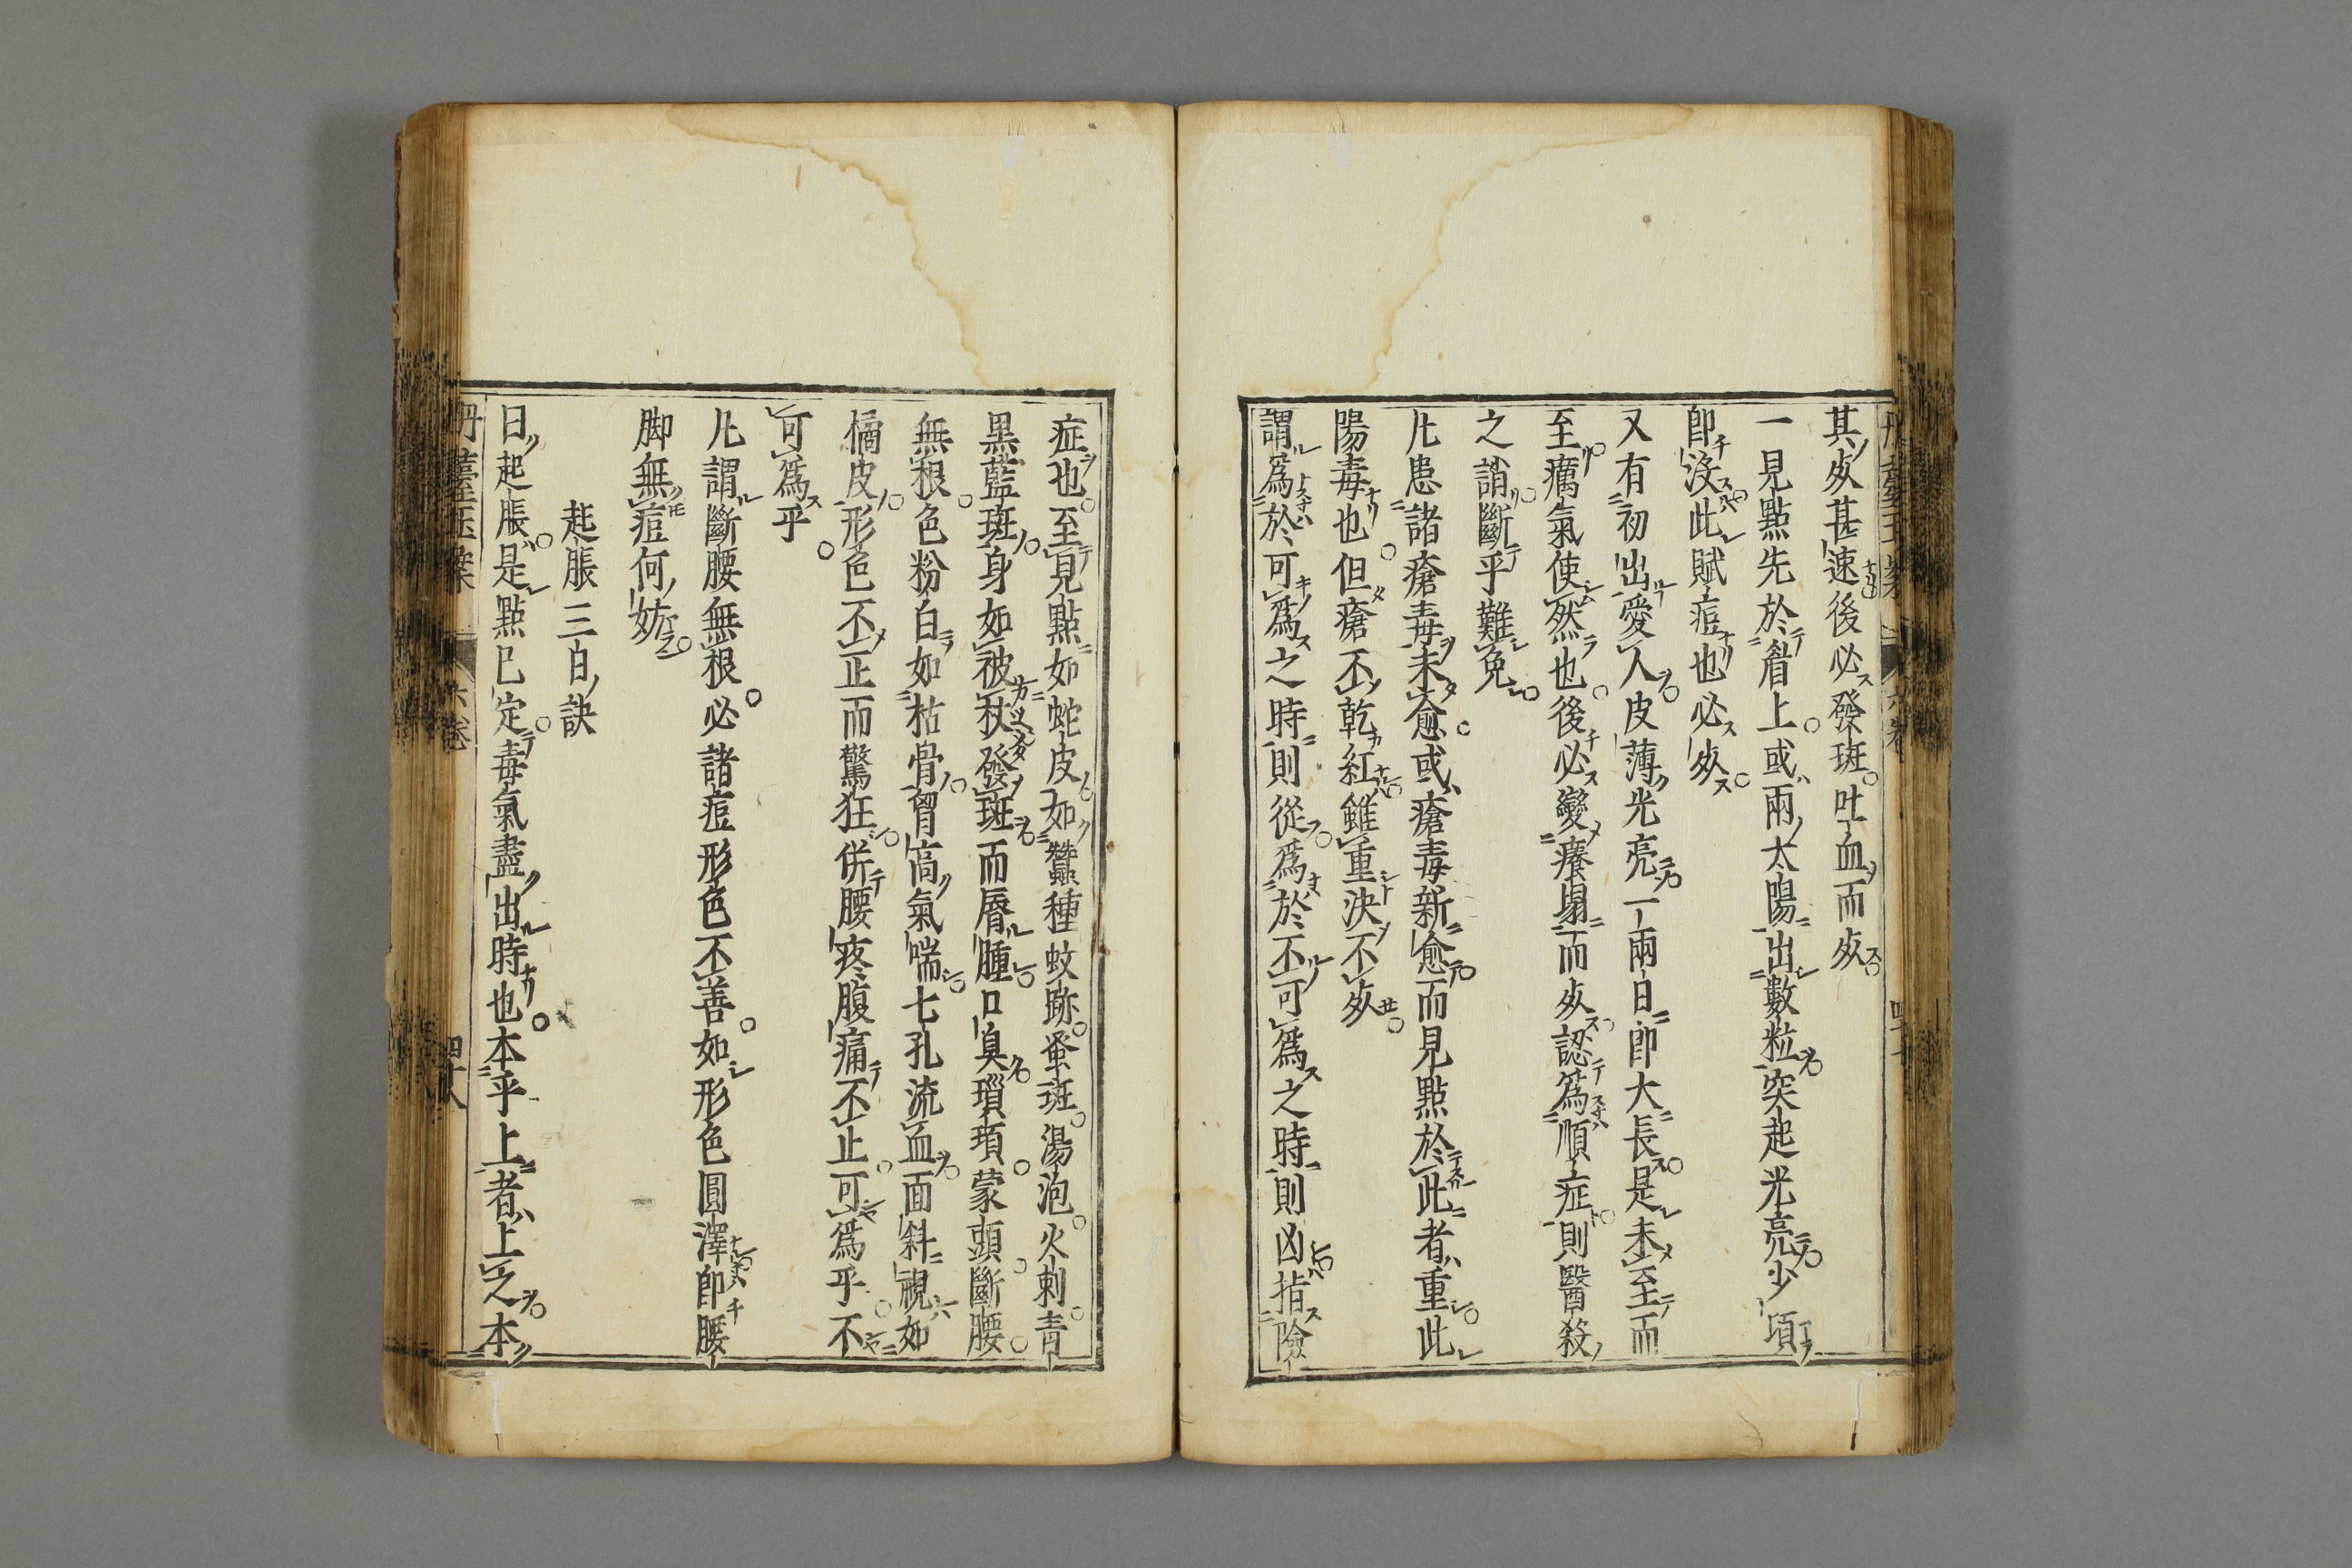 其死甚速後必發斑吐血而死
一見點先於眉上或兩太陽出數粒突起光亮少頃
即沒此賊痘也必死
又有初出愛人皮薄光亮一兩日即大長是未至而
至癘氣使然也後必變癢塌而死認為順症則醫殺
之誚斷乎難免
凡患諸瘡毒未愈或瘡毒新愈而見點於此者重此
陽毒也但瘡不乾紅雖重決不死
謂為於可為之時則從為於不可為之時則凶指險
症也至見點如蛇皮如蠶種蚊跡蚤斑湯泡火刺青
黑藍斑身如被杖發斑而唇腫口臭瑣項蒙頭斷腰
無根色粉白如枯骨胃高氣喘七孔流血面斜視如
橘皮形色不正而驚狂併腰疼腹痛不止可為乎不
可為乎
凡謂斷腰無根必諸痘形色不善如形色圓澤即腰
脚無痘何妨
起脹三日訣
日起脹是點已定毒氣盡出時也本乎上者上之本
丹臺玉案 六卷 四十八